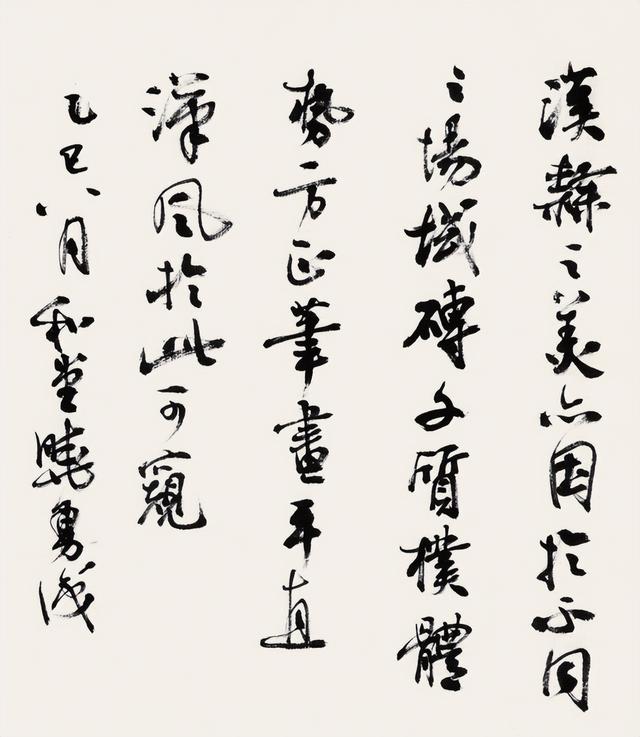 漢隸之美亦因於不同
之場域磚文質樸體
勢方正筆畫平直
漢風於此可窺
乙巳八月和堂曉勇識